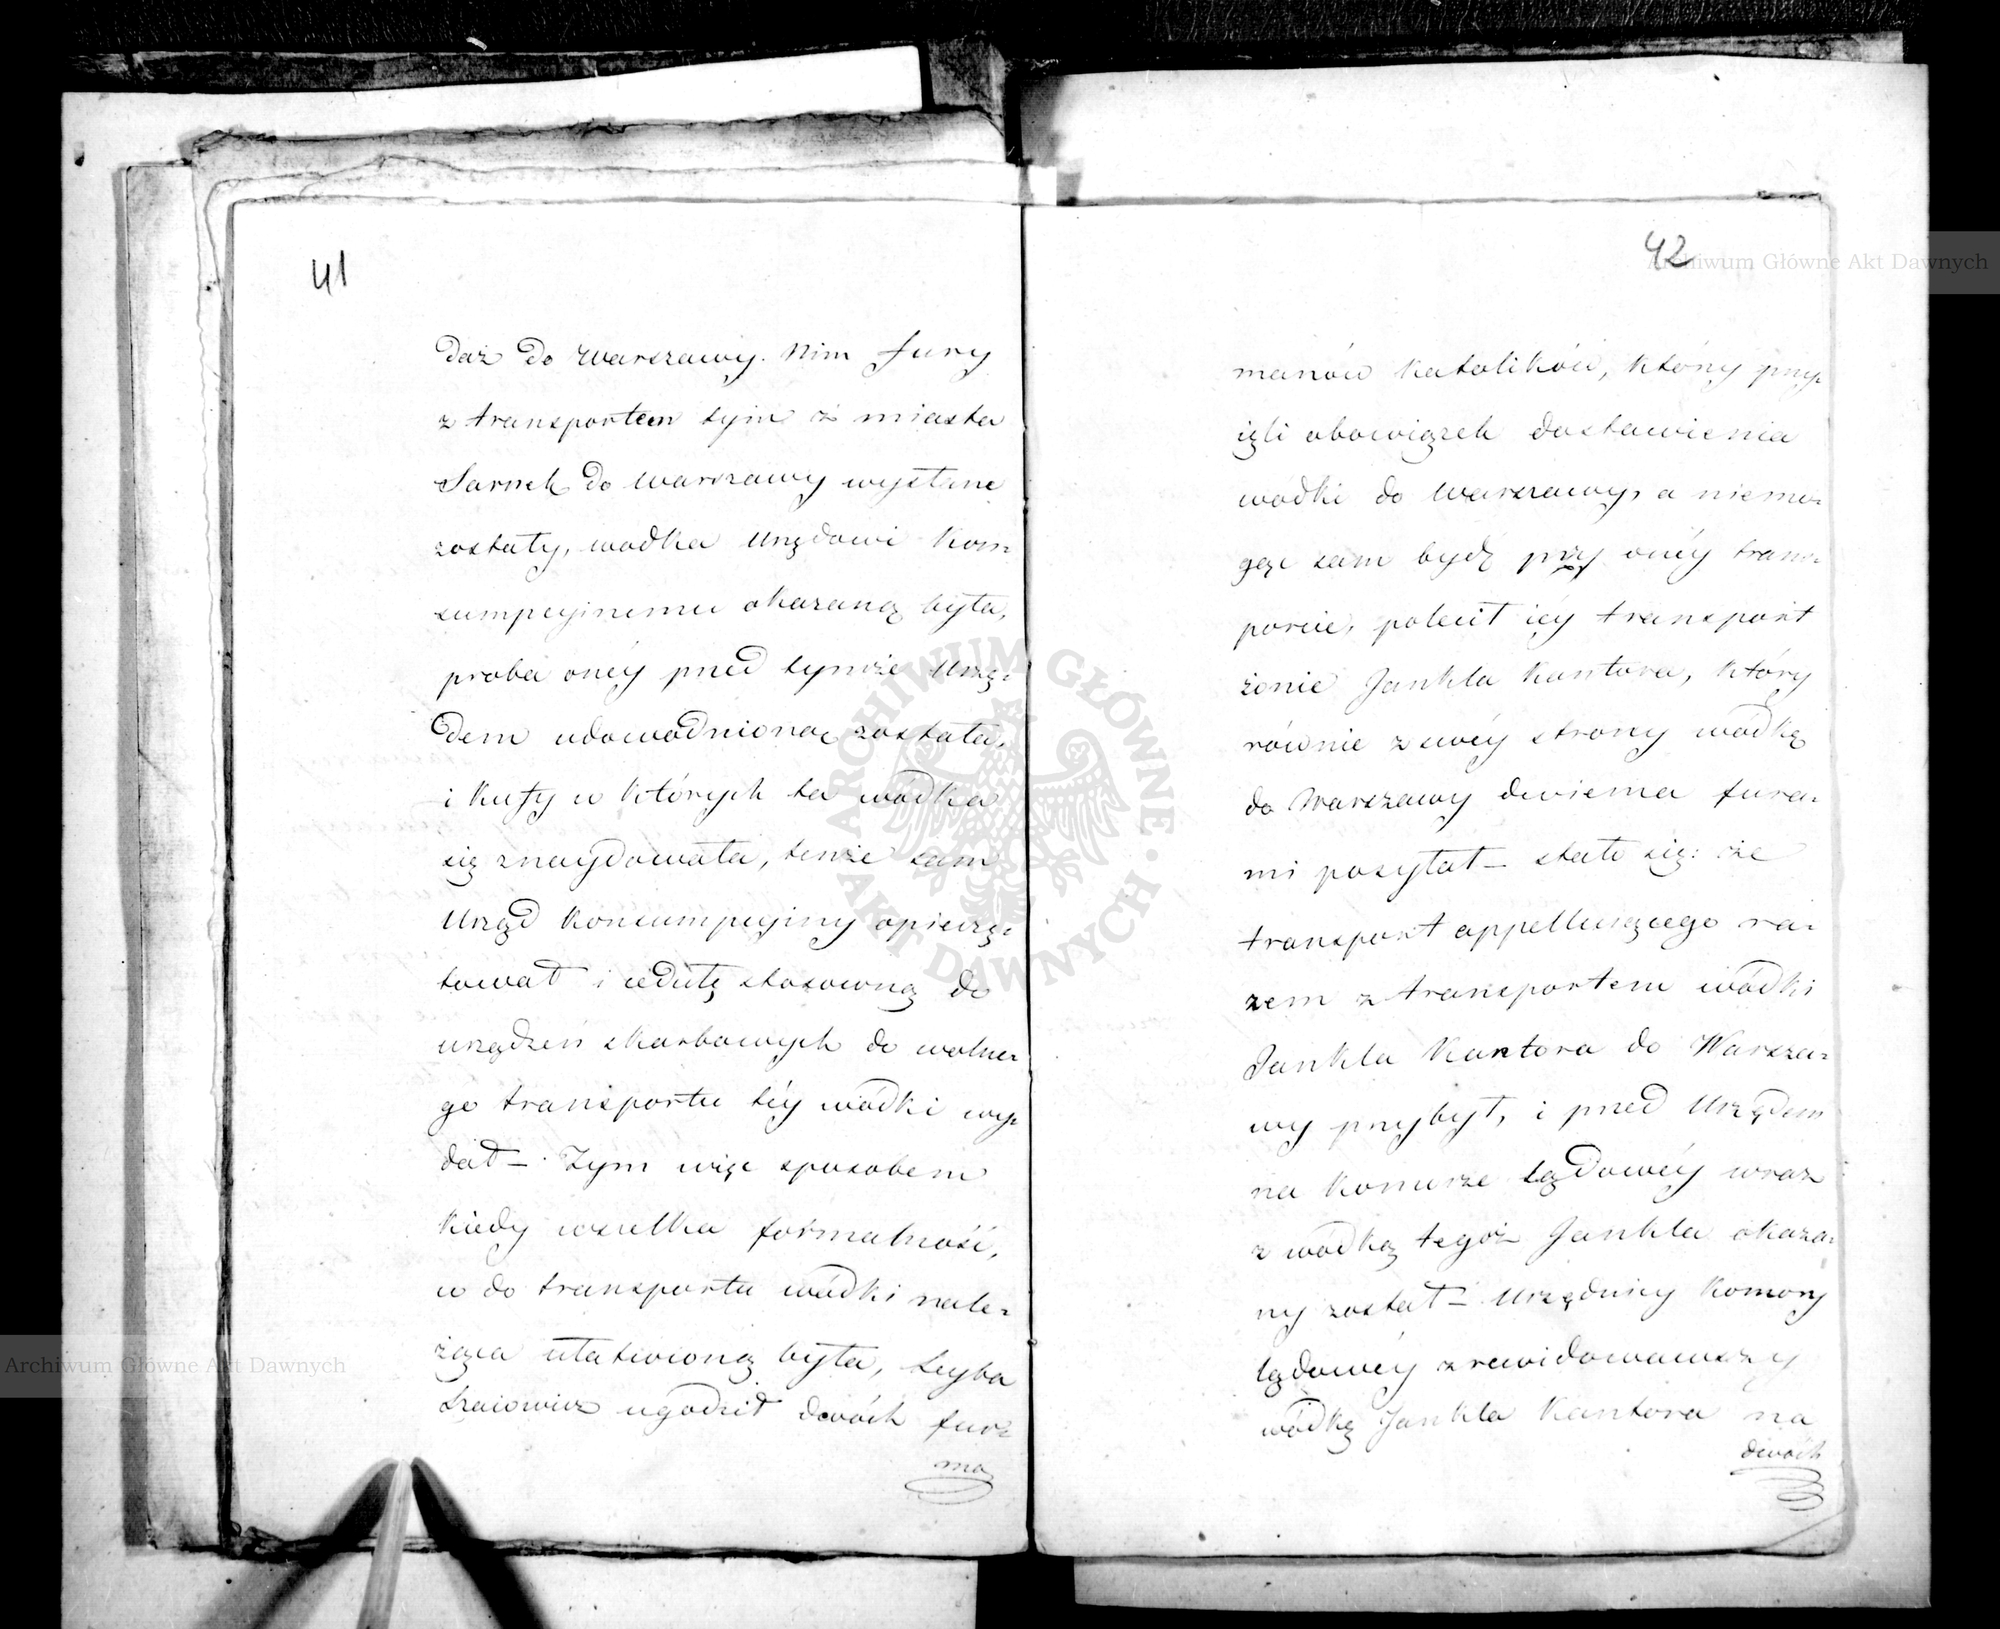 41
daż do Warszawy. Nim fury
z transportem tym z miasta
Sarnek do Warszawy wysłane
zostały, wodka Urzędowi Kon-
sumpcyinemu okazaną była,
proba onéy pned tymże Urzę-
dem udowodnioną została,
i kufy w których ta wódka
się znaydowała, tenże sam
Urząd Konsumpcyiny opieczę-
tował i cedułę stosowną do
urządzeń skarbowych do wolne-
go transportu téy wódki wy-
dał – Tym więc sposobem
kiedy wszelka formalność,
w do transportu wódki nale-
żąca ułatwioną była, Leyba
Szaiowicz ugodził dwóch fur-
ma
42
manów katolików, którzy przy-
ięli obowiązek dostawienia
wodki do Warszawy, a niemo-
gąc sam bydź przy onéy trans-
porcie, polecił iéy transport
żonie Jankla Kantora, który
równie z swéy strony wódkę
do Warszawy dwiema fura-
mi posyłał – stało się: że
transport appelluiącego ra-
zem z transportem wódki
Jankla Kantora do Warsza-
wy przybył, i pned Urzędem
na Komorze lądowéy wraz
z wódką tegóż Jankla okaza-
ny został – Urzędnicy Komory
lądowéy zrewidowawszy
wódkę Jankla Kantora na
dwóch
Archiwum Główne Akt Dawnych
Archiwum Główne Akt Dawnych
ARCHIWUM GŁÓWNE AKT DAWNYCH